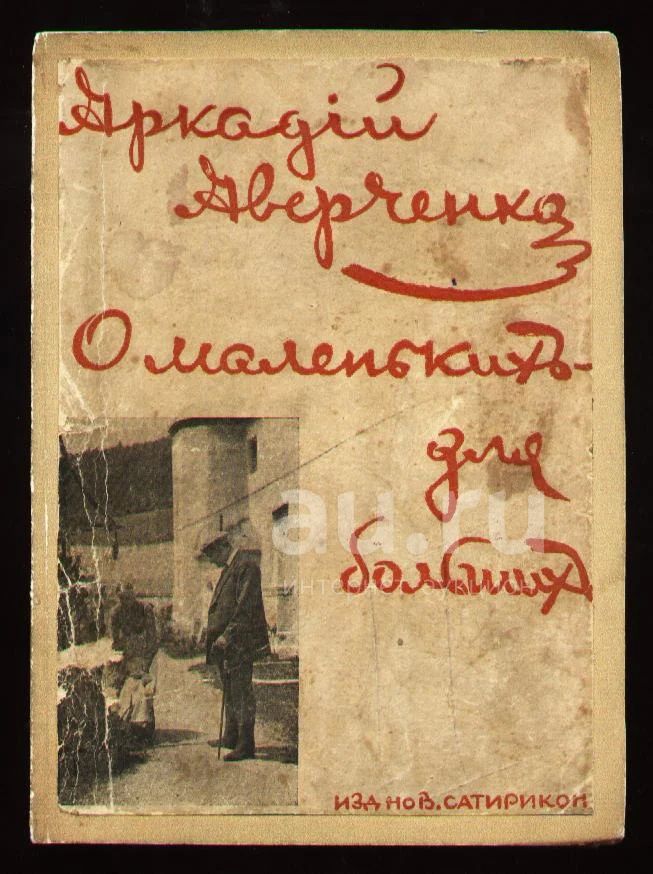 Аркадій
Аверченко
О маленькихъ-
для
большихъ
au.ru
интернет-аукцион
ИЗД НОВ. САТИРИКОН